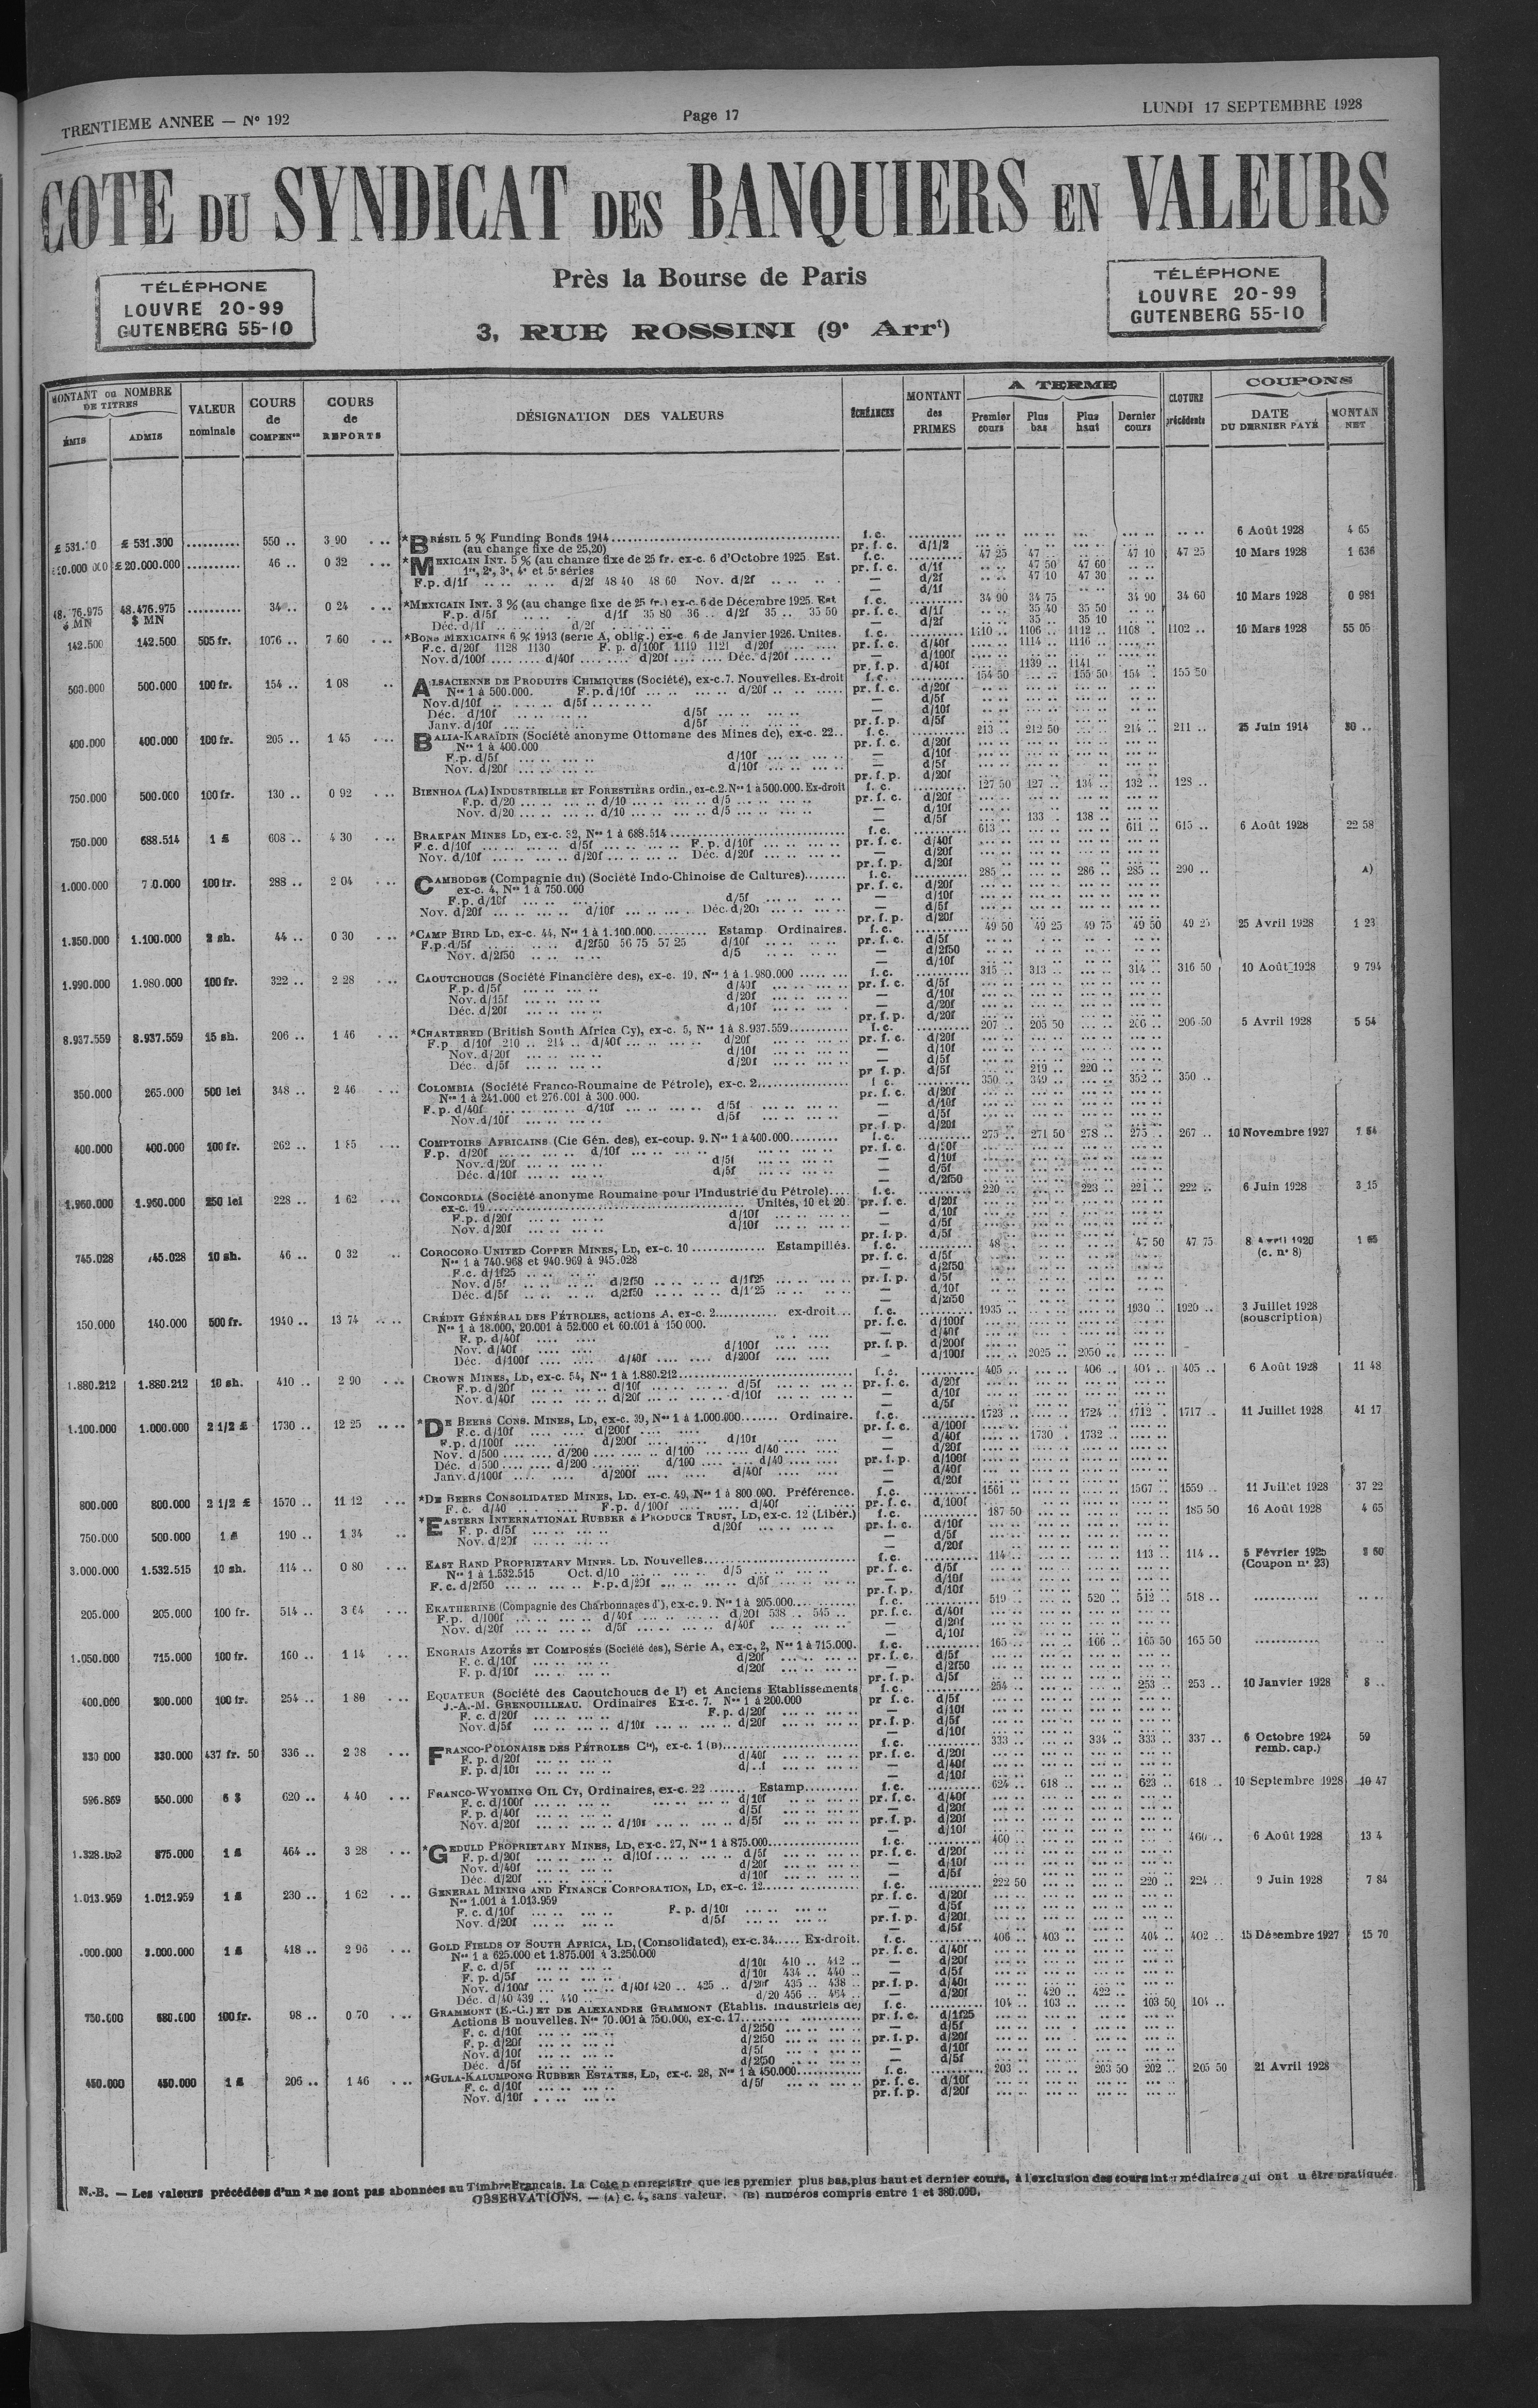 TRENTIEME ANNEE — N° 192
Page 17
LUNDI 17 SEPTEMBRE 1928
COTE DU SYNDICAT DES BANQUIERS EN VALEURS
Près la Bourse de Paris
3, RUE ROSSINI (9e Arrt)
TÉLÉPHONE
LOUVRE 20-99
GUTENBERG 55-10
TÉLÉPHONE
LOUVRE 20-99
GUTENBERG 55-10
MONTANT ou NOMBRE DE TITRES
ÉMIS ADMIS
VALEUR nominale
COURS de COMPENSon
COURS de REPORTS
DÉSIGNATION DES VALEURS
ÉCHÉANCES
MONTANT des PRIMES
A TERME
Premier cours Plus bas Plus haut Dernier cours
CLOTURE précédente
COUPONS
DATE DU DERNIER PAYÉ
MONTAN NET
£ 531.300 .......... 550 .. 3 90 *BRÉSIL 5 % Funding Bonds 1914 f.c. 6 Août 1928 4 65
(au change fixe de 25,20) pr. f. c. d/1/2
£ 20.000.000 .......... 46 .. 0 32 *MEXICAIN INT. 5 % (au change fixe de 25 fr. ex-c. 6 d'Octobre 1925. Est. f.c. 47 25 47 .. 47 10 47 25 10 Mars 1928 1 636
1re, 2e, 3e, 4e et 5e séries pr. f. c. d/1f 47 50 47 60
F.p. d/1f d/2f 48 40 48 60 Nov. d/2f — d/2f 47 10 47 30
48.476.975 $ MN 34 .. 0 24 *MEXICAIN INT. 3 % (au change fixe de 25 fr.) ex-c. 6 de Décembre 1925. Est f.c. 34 90 34 75 34 90 34 60 10 Mars 1928 0 981
F.p. d/5f d/1f 35 80 36 .. d/2f 35 .. 35 50 pr. f. c. d/1f 35 40 35 50
Déc. d/1f d/2f — d/2f 35 .. 35 10
142.500 142.500 505 fr. 1076 .. 7 60 *BONS MEXICAINS 6 % 1913 (série A, oblig.) ex-c. 6 de Janvier 1926. Unites. f.c. 1110 .. 1106 .. 1112 .. 1108 . 1102 .. 10 Mars 1928 55 05
F.c. d/20f 1128 1130 F. p. d/100f 1119 1121 d/20f pr. f. c. d/40f 1114 .. 1116 ..
Nov. d/100f d/40f d/20f Déc. d/20f — d/100f
pr. f. p. d/40f 1139 .. 1141
500.000 500.000 100 fr. 154 .. 1 08 ALSACIENNE DE PRODUITS CHIMIQUES (Société), ex-c.7. Nouvelles. Ex-droit f.c. 154 50 155 50 154 .. 155 50
Nos 1 à 500.000. F.p. d/10f d/20f pr. f. c. d/20f
Nov.d/10f d/5f — d/5f
Déc. d/10f d/5f — d/10f
Janv. d/10f d/5f pr. f. p. d/5f
400.000 400.000 100 fr. 205 .. 1 45 BALIA-KARAÏDIN (Société anonyme Ottomane des Mines de), ex-c. 22.. f.c. 213 .. 212 50 214 .. 211 .. 25 Juin 1914 30 ..
Nos 1 à 400.000 pr. f. c. d/20f
F.p. d/5f d/10f — d/10f
Nov. d/20f d/10f — d/5f
pr. f. p. d/20f
750.000 500.000 100 fr. 130 .. 0 92 BIENHOA (LA) INDUSTRIELLE ET FORESTIÈRE ordin., ex-c.2. Nos 1 à 500.000. Ex-droit f. c. 127 50 127 .. 134 .. 132 .. 128 ..
F.p. d/20 d/10 d/5 pr. f. c. d/20f
Nov. d/20 d/10 d/5 — d/10f
— d/5f 133 .. 138 ..
750.000 688.514 1 £ 608 .. 4 30 BRAKPAN MINES LD, ex-c. 32, Nos 1 à 688.514 f.c. 613 .. 611 .. 615 .. 6 Août 1928 22 58
F.c. d/10f d/5f F. p. d/10f pr. f. c. d/40f
Nov. d/10f d/20f Déc. d/20f — d/20f
pr. f. p. d/20f
1.000.000 100 fr. 288 .. 2 04 CAMBODGE (Compagnie du) (Société Indo-Chinoise de Cultures) f.c. 285 .. 286 .. 285 .. 290 .. A)
ex-c. 4, Nos 1 à 750.000 pr. f. c. d/20f
F.p. d/10f d/5f — d/10f
Nov. d/20f d/10f Déc. d/20f — d/5f
pr. f. p. d/20f
1.350.000 1.100.000 2 sh. 44 .. 0 30 *CAMP BIRD LD, ex-c. 44, Nos 1 à 1.100.000 Estamp Ordinaires. f.c. 49 50 49 25 49 75 49 50 49 25 25 Avril 1928 1 23
F.p.d/5f d/2f50 56 75 57 25 d/10f pr. f. c. d/5f
Nov. d/2f50 d/5 — d/2f50
— d/10f
1.990.000 1.980.000 100 fr. 322 .. 2 28 CAOUTCHOUCS (Société Financière des), ex-c. 19, Nos 1 à 1.980.000 f.c. 315 .. 313 .. 314 .. 316 50 10 Août 1928 9 794
F.p. d/5f d/40f pr. f. c. d/5f
Nov. d/15f d/20f — d/10f
Déc. d/20f d/10f — d/20f
pr. f. p. d/20f
8.937.559 8.937.559 15 sh. 206 .. 1 46 *CHARTERED (British South Africa Cy), ex-c. 5, Nos 1 à 8.937.559 f.c. 207 .. 205 50 206 .. 206 50 5 Avril 1928 5 54
F.p d/10f 210 .. 214 .. d/40f d/20f pr. f. c. d/20f
Nov. d/20f d/10f — d/10f
Déc. d/5f d/20f — d/5f
pr f. p. d/5f 219 .. 220 ..
350.000 265.000 500 lei 348 .. 2 46 COLOMBIA (Société Franco-Roumaine de Pétrole), ex-c. 2 f c. 350 .. 349 .. 352 .. 350 ..
Nos 1 à 241.000 et 276.001 à 300.000. pr. f. c. d/20f
F.p. d/40f d/10f d/5f — d/10f
Nov.d/10f d/5f — d/5f
pr. f. p. d/20f
400.000 400.000 100 fr. 262 .. 1 85 COMPTOIRS AFRICAINS (Cie Gén. des), ex-coup. 9. Nos 1 à 400.000 f.c. 275 .. 271 50 278 .. 275 .. 267 .. 10 Novembre 1927
F.p. d/20f d/10f pr. f. c.
Nov. d/20f d/5f — d/10f
Déc. d/10f d/5f — d/5f
— d/2f50
1.960.000 1.960.000 250 lei 228 .. 1 62 CONCORDIA (Société anonyme Roumaine pour l'Industrie du Pétrole) f.c. 220 .. 223 .. 221 .. 222 .. 6 Juin 1928 3 15
ex-c. 19 Unités, 10 et 20 pr. f. c. d/20f
F.p. d/20f d/10f — d/10f
Nov. d/20f d/10f — d/5f
pr. f. p. d/5f
745.028 745.028 10 sh. 46 .. 0 32 COROCORO UNITED COPPER MINES, LD, ex-c. 10 Estampillés. f.c. 48 .. 47 50 47 75 8 Avril 1920 (c. n° 8)
Nos 1 à 740.968 et 940.969 à 945.028 pr. f. c. d/5f
F.c. d/1f25 — d/2f50
Nov. d/5f d/2f50 d/1f25 pr. f. p. d/5f
Déc. d/5f d/2f50 d/1f25 — d/10f
— d/2f50
150.000 140.000 500 fr. 1940 .. 13 74 CRÉDIT GÉNÉRAL DES PÉTROLES, actions A, ex-c. 2 ex-droit f.c. 1935 .. 1930 .. 1920 .. 3 Juillet 1928 (souscription)
Nos 1 à 18.000, 20.001 à 52.000 et 60.001 à 150 000. pr. f. c. d/100f
F. p. d/40f — d/40f
Nov. d/40f d/100f pr. f. p. d/200f
Déc. d/100f d/40f d/200f — d/100f 2025 .. 2050 ..
1.880.212 1.880.212 10 sh. 410 .. 2 90 CROWN MINES, LD, ex-c. 54, Nos 1 à 1.880.212 f.c. 405 .. 406 .. 404 .. 405 .. 6 Août 1928 11 48
F.p. d/20f d/10f d/5f pr. f. c. d/20f
Nov. d/40f d/20f d/10f — d/10f
— d/5f
1.100.000 1.000.000 2 1/2 £ 1730 .. 12 25 *DE BEERS CONS. MINES, LD, ex-c. 39, Nos 1 à 1.000.000 Ordinaire. f.c. 1723 .. 1724 .. 1712 .. 1717 .. 11 Juillet 1928 41 17
F.c. d/10f d/200f pr. f. c. d/100f
F.p. d/100f d/200f d/10f — d/40f 1730 .. 1732 ..
Nov. d/500 d/200 d/100 d/40 — d/20f
Déc. d/500 d/200 d/100 d/40 pr. f. p. d/100f
Janv. d/100f d/200f d/40f — d/40f
— d/20f
800.000 800.000 2 1/2 £ 1570 .. 11 12 *DE BEERS CONSOLIDATED MINES, LD. ex-c. 49, Nos 1 à 800 000. Préférence. f.c. 1561 .. 1567 .. 1559 .. 11 Juillet 1928 37 22
F. c. d/40 F.p. d/100f d/40f pr. f. c. d/100f
750.000 500.000 1 £ 190 .. 1 34 *EASTERN INTERNATIONAL RUBBER & PRODUCE TRUST, LD, ex-c. 12 (Libér.) f.c. 187 50 185 50 16 Août 1928 4 65
F. p. d/5f d/20f pr. f. c. d/10f
Nov. d/20f — d/5f
— d/20f
3.000.000 1.532.515 10 sh. 114 .. 0 80 EAST RAND PROPRIETARY MINES. LD. Nouvelles f.c. 114 .. 113 .. 114 .. 5 Février 1925 (Coupon n° 23)
Nos 1 à 1.532.515 Oct. d/10 d/5 pr. f. c. d/5f
F. c. d/2f50 F.p. d/20f d/5f — d/10f
pr. f. p. d/10f
205.000 205.000 100 fr. 514 .. 3 64 EKATHERINE (Compagnie des Charbonnages d'), ex-c. 9. Nos 1 à 205.000 f.c. 519 .. 520 .. 512 .. 518 ..
F.p. d/100f d/40f d/20f 538 .. 545 .. pr. f. c. d/40f
Nov. d/20f d/5f d/40f — d/20f
— d/10f
1.050.000 715.000 100 fr. 160 .. 1 14 ENGRAIS AZOTÉS ET COMPOSÉS (Société des), Série A, ex-c, 2, Nos 1 à 715.000. f.c. 165 .. 166 .. 165 50 165 50
F. c. d/10f d/20f pr. f. c. d/5f
F. p. d/10f d/20f — d/2f50
pr. f. p. d/5f
400.000 200.000 100 fr. 254 .. 1 80 EQUATEUR (Société des Caoutchoucs de l') et Anciens Etablissements f.c. 254 .. 253 .. 253 .. 10 Janvier 1928 8 ..
J.-A.-M. GRENOUILLEAU. Ordinaires Ex-c. 7. Nos 1 à 200.000 pr f. c. d/5f
F. c. d/20f F.p. d/20f — d/10f
Nov. d/5f d/10f d/20f pr. f. p. d/5f
— d/10f
330 000 330.000 437 fr. 50 336 .. 2 38 FRANCO-POLONAISE DES PÉTROLES Cie), ex-c. 1 (B) f.c. 333 .. 334 .. 333 .. 337 .. 6 Octobre 1924 remb. cap.) 59
F. p. d/20f d/40f pr. f. c. d/20f
F. p. d/10f — d/40f
— d/10f
596.869 550.000 5 $ 620 .. 4 40 FRANCO-WYOMING OIL CY, Ordinaires, ex-c. 22 Estamp f.c. 624 .. 618 .. 623 .. 618 .. 10 Septembre 1928 10 47
F. c. d/100f d/10f pr. f. c. d/40f
F. p. d/40f d/5f — d/20f
Nov. d/20f d/10f d/5f pr. f. p. d/20f
— d/10f
875.000 1 £ 464 .. 3 28 *GEDULD PROPRIETARY MINES, LD, ex-c. 27, Nos 1 à 875.000 f.c. 460 .. 460 .. 6 Août 1928 13 4
F. p. d/20f d/10f d/5f pr. f. c. d/20f
Nov. d/40f d/20f — d/10f
Déc. d/20f d/10f — d/5f
1.013.959 1.012.959 1 £ 230 .. 1 62 GENERAL MINING AND FINANCE CORPORATION, LD, ex-c. 12 f.c. 222 50 220 .. 224 .. 9 Juin 1928 7 84
Nos 1.001 à 1.013.959 pr. f. c. d/20f
F. c. d/10f F. p. d/10f — d/5f
Nov. d/20f d/5f pr. f. p. d/20f
— d/5f
.000.000 3.000.000 1 £ 418 .. 2 96 GOLD FIELDS OF SOUTH AFRICA, LD, (Consolidated), ex-c. 34 Ex-droit. f.c. 406 .. 403 .. 404 .. 402 .. 15 Décembre 1927 15 70
Nos 1 à 625.000 et 1.875.001 à 3.250.000 pr. f. c. d/40f
F. c. d/5f d/10f 410 .. 412 .. — d/20f
F. p. d/5f d/10f 434 .. 440 .. — d/5f
Nov. d/100f d/40f 420 .. 425 .. d/20f 435 .. 438 .. pr. f. p. d/40f
Déc. d/40 439 .. 440 .. d/20 456 .. 464 .. — d/20f 420 .. 422 ..
750.000 680.000 100 fr. 98 .. 0 70 GRAMMONT (E.-C.) ET DE ALEXANDRE GRAMMONT (Etablis. industriels de) f.c. 104 .. 103 .. 103 50 104 ..
Actions B nouvelles. Nos 70.001 à 750.000, ex-c. 17 pr. f. c. d/1f25
F. c. d/10f d/2f50 — d/5f
F. p. d/20f d/2f50 pr. f. p. d/20f
Nov. d/10f d/5f — d/10f
Déc. d/5f d/2f50 — d/5f
450.000 450.000 1 £ 206 .. 1 46 *GULA-KALUMPONG RUBBER ESTATES, LD, ex-c. 28, Nos 1 à 450.000 f.c. 203 .. 203 50 202 .. 205 50 21 Avril 1928
F. c. d/10f d/5f pr. f. c. d/10f
Nov. d/10f pr. f. p. d/20f
N.-B. — Les valeurs précédées d'un * ne sont pas abonnées au Timbre Français. La Cote n'enregistre que les premier plus bas, plus haut et dernier cours, à l'exclusion des cours intermédiaires qui ont u être pratiqués.
OBSERVATIONS. — (A) c. 4, sans valeur. (B) numéros compris entre 1 et 380.000.